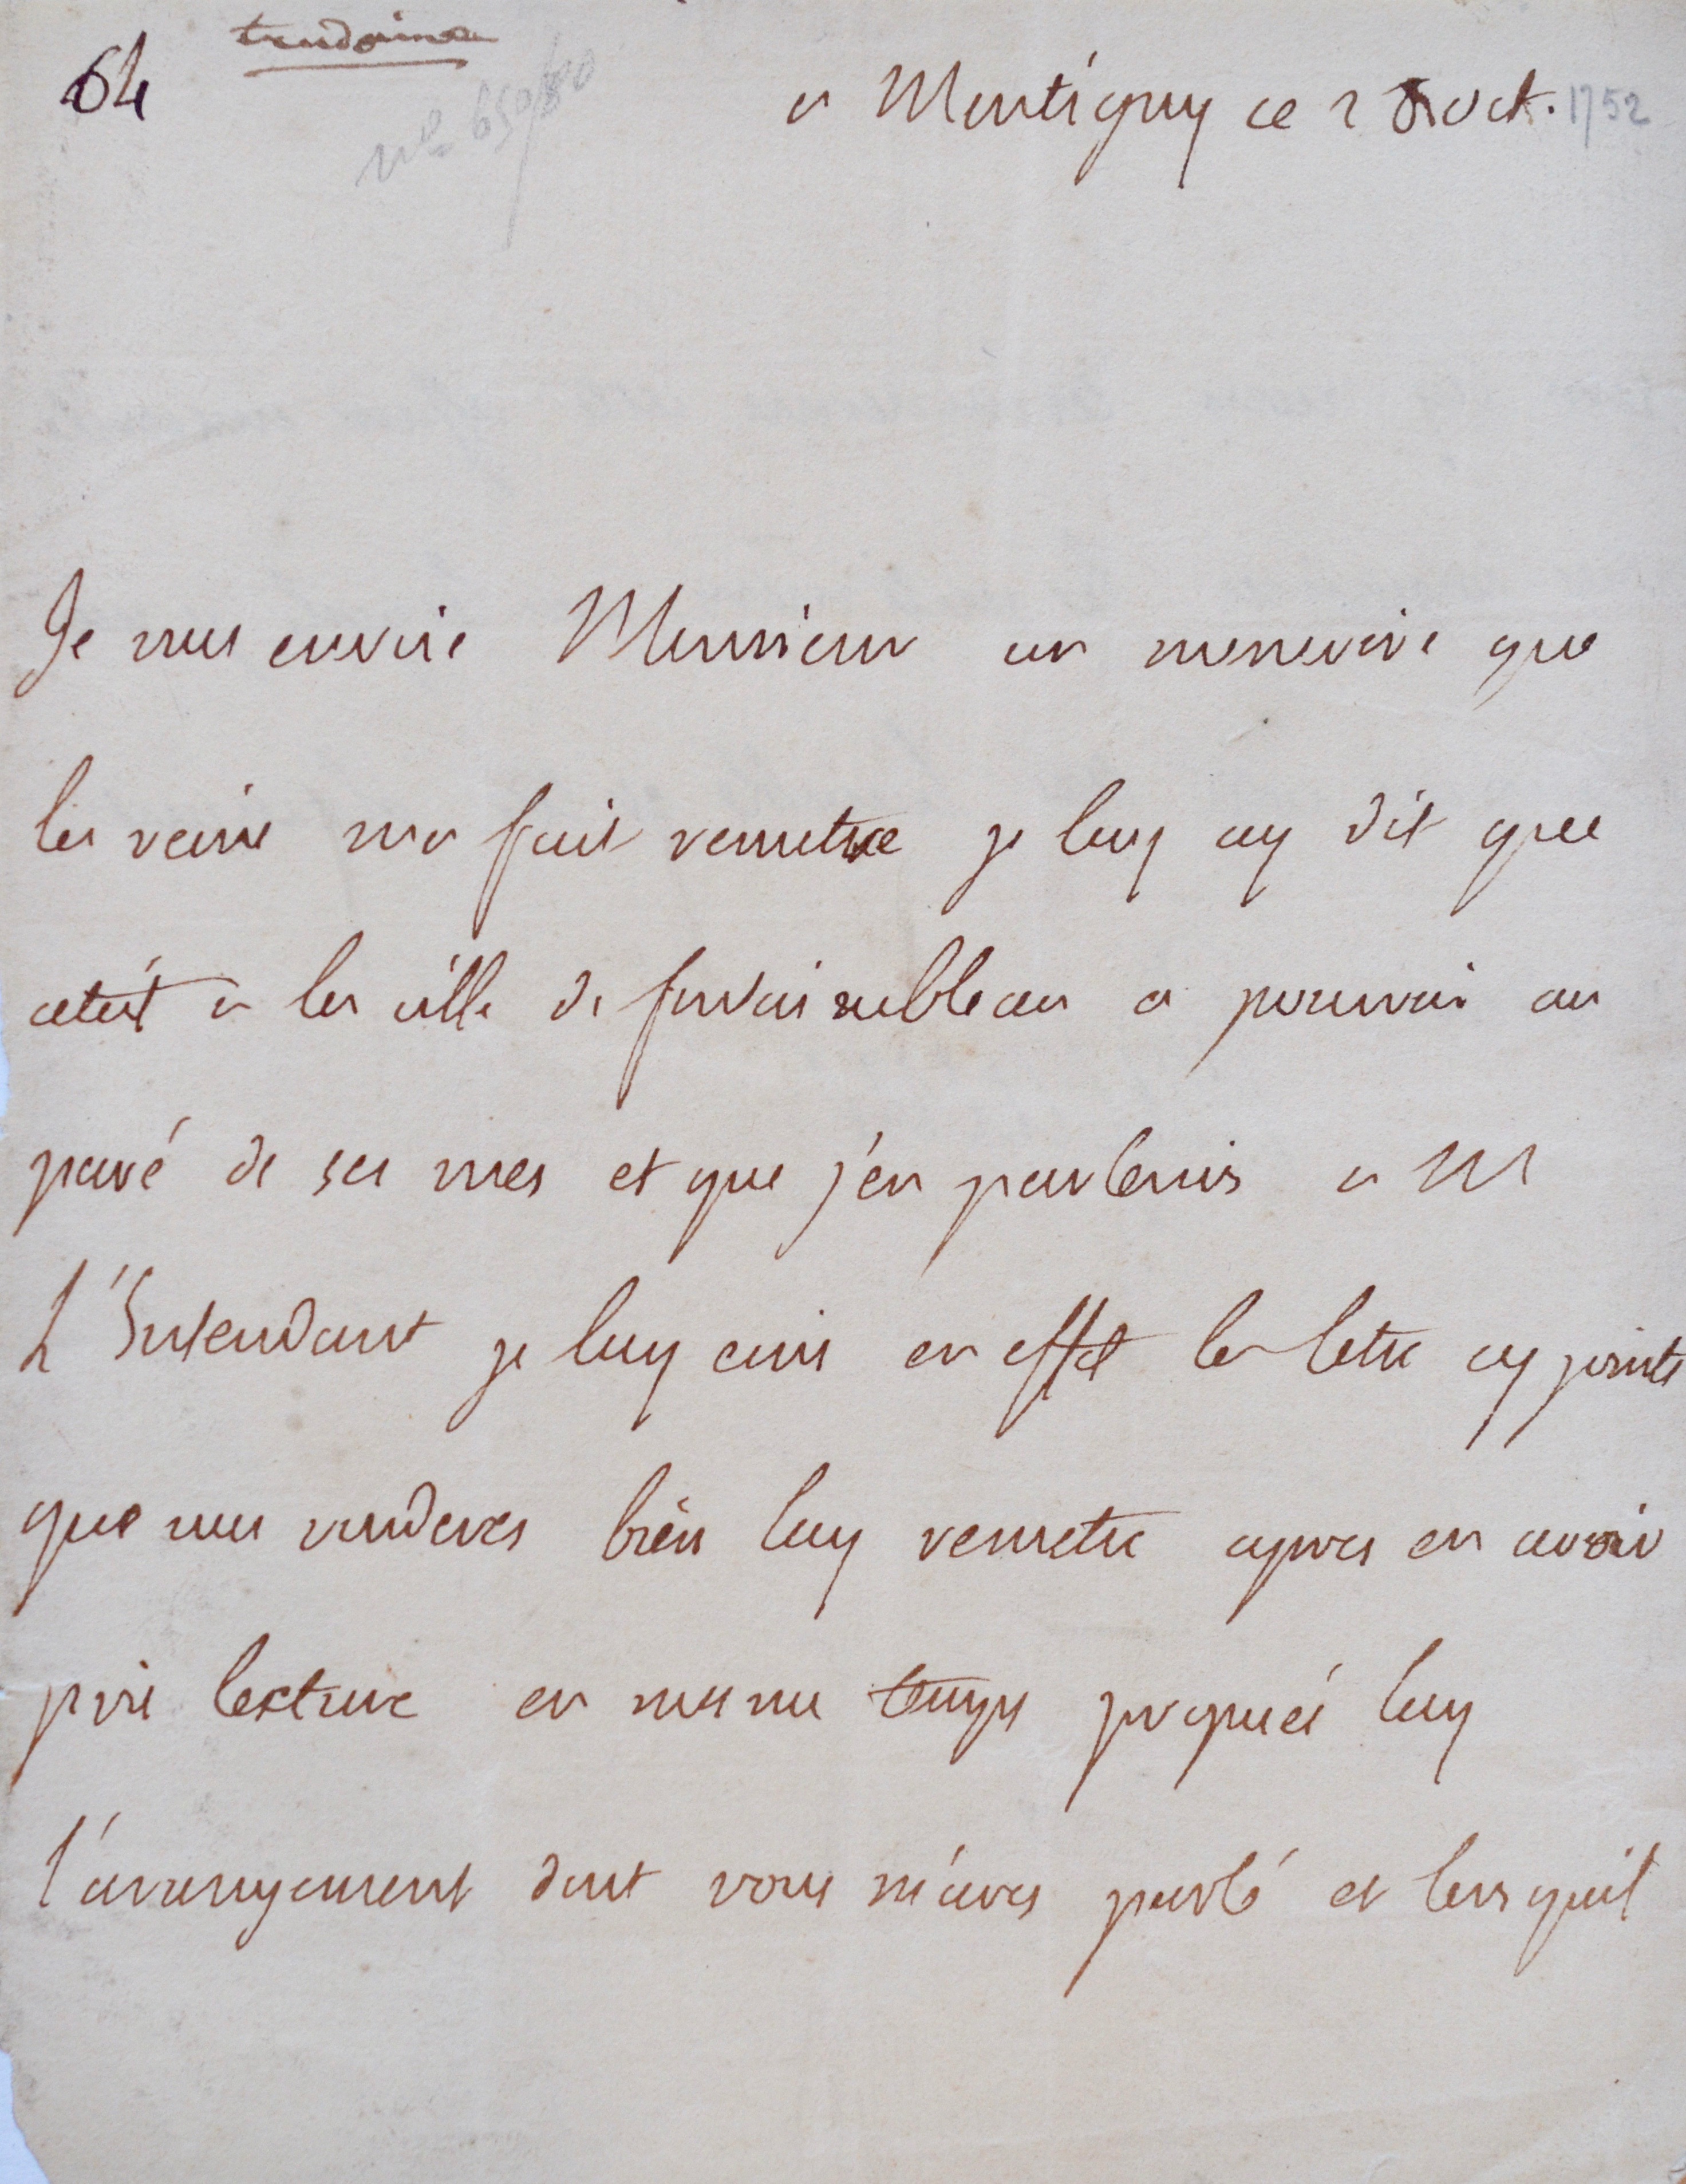 64
trudaine
n° 650/80
a Montigny ce 28 oct. 1752
Je vous envoie Monsieur un memoire que
la reine ma fait remettre je luy ay dit que
cetoit a la ville de fontainebleau a pourvoir au
pavé de ses rues et que j'en parlerois a M
L'Intendant je luy ecris en effet la letre cy jointe
que vous voudres bien luy remetre apres en avoir
pris lecture en mesme temps proposés luy
l'arrangement dont vous m'aves parlé et lors quil